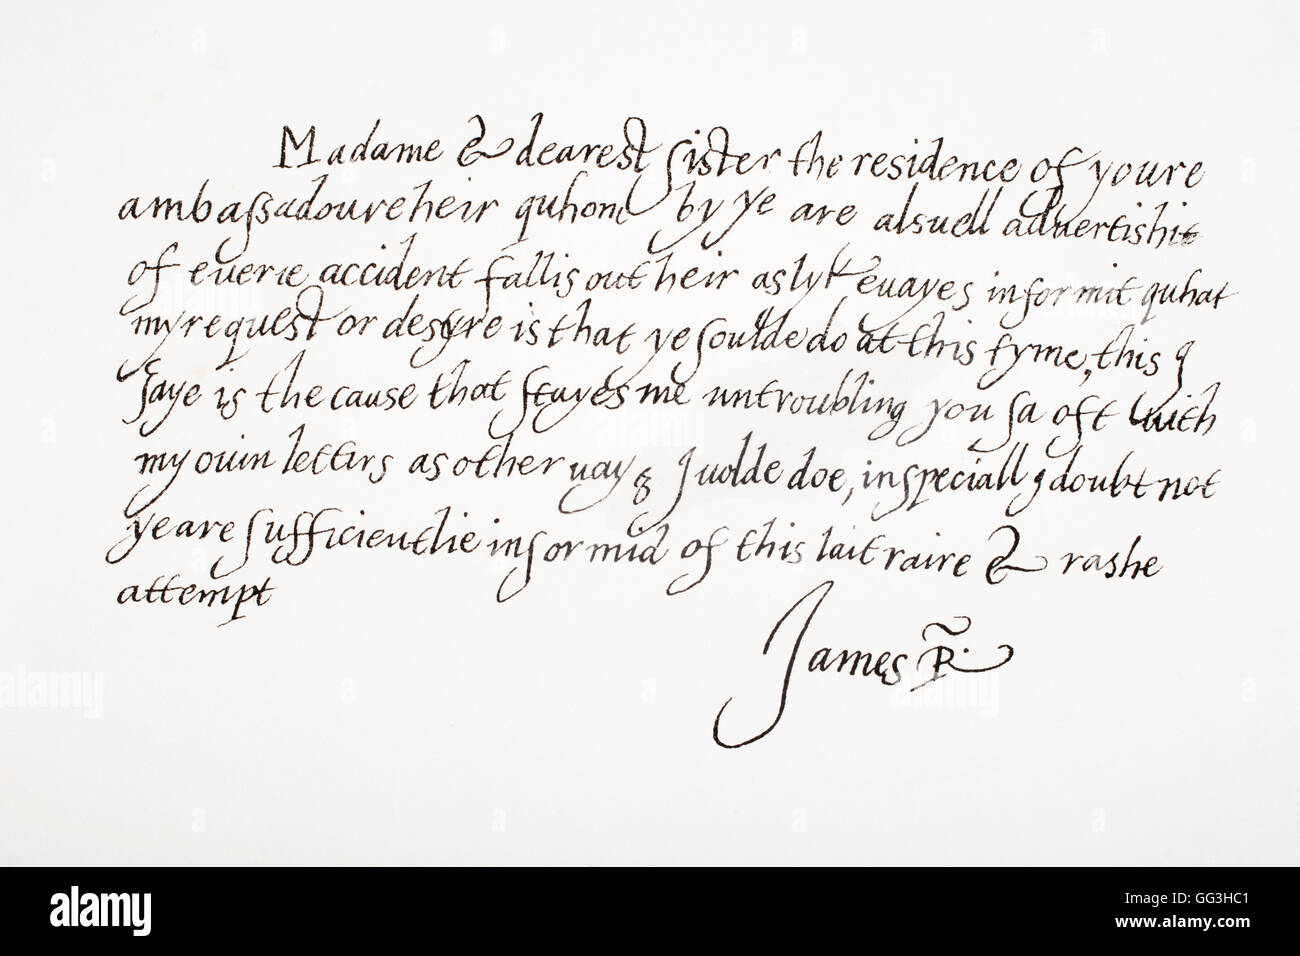 Madame & dearest sister the residence of youre
ambassadoure heir quhom by ye are alsuell advertishit
of everie accident fallis out heir as lyk evayes informit quhat
my request or desyre is that ye soulde do at this tyme, this j
saye is the cause that stayes me untroubling you sa oft with
my ouin letters as other uay j uolde doe, in speciall j doubt not
ye are sufficientlie informid of this lait raire & rashe
attempt
James R.
alamy
Image ID: GG3HC1
www.alamy.com